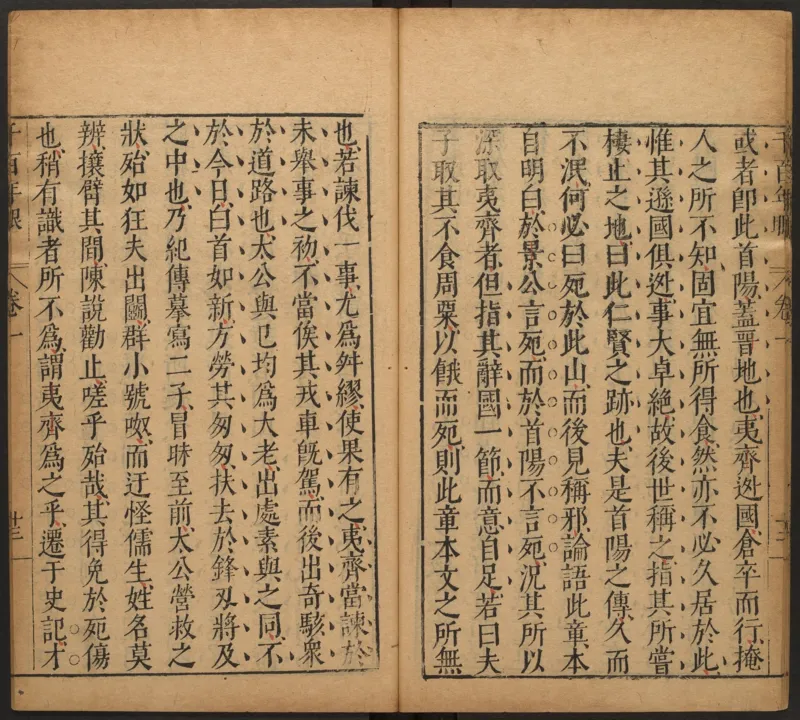 或者卽此首陽蓋晋地也夷齊逃國倉卒而行掩
人之所不知固宜無所得食然亦不必久居於此
惟其遜國俱逃事大卓絶故後世稱之指其所嘗
棲止之地曰此仁賢之跡也夫是首陽之傳久而
不泯何必曰死於此山而後見稱邪論語此章本
自明白於景公言死而於首陽不言死況其所以
深取夷齊者但指其辭國一節而意自足若曰夫
子取其不食周粟以餓而死則此章本文之所無
千百年眼
卷一
也若諫伐一事尤爲舛繆使果有之夷齊當諫於
未舉事之初不當俟其戎車旣駕而後出奇駭衆
於道路也太公與已均爲大老出處素與之同不
於今日白首如新方勞其匆匆扶去於鋒刄將及
之中也乃紀傳摹寫二子冒昧至前太公營救之
狀殆如狂夫出鬭群小號呶而迂怪儒生姓名莫
辨攘臂其間陳說勸止嗟乎殆哉其得免於死傷
也稍有識者所不爲謂夷齊爲之乎遷于史記才
千百年眼
卷一
十三